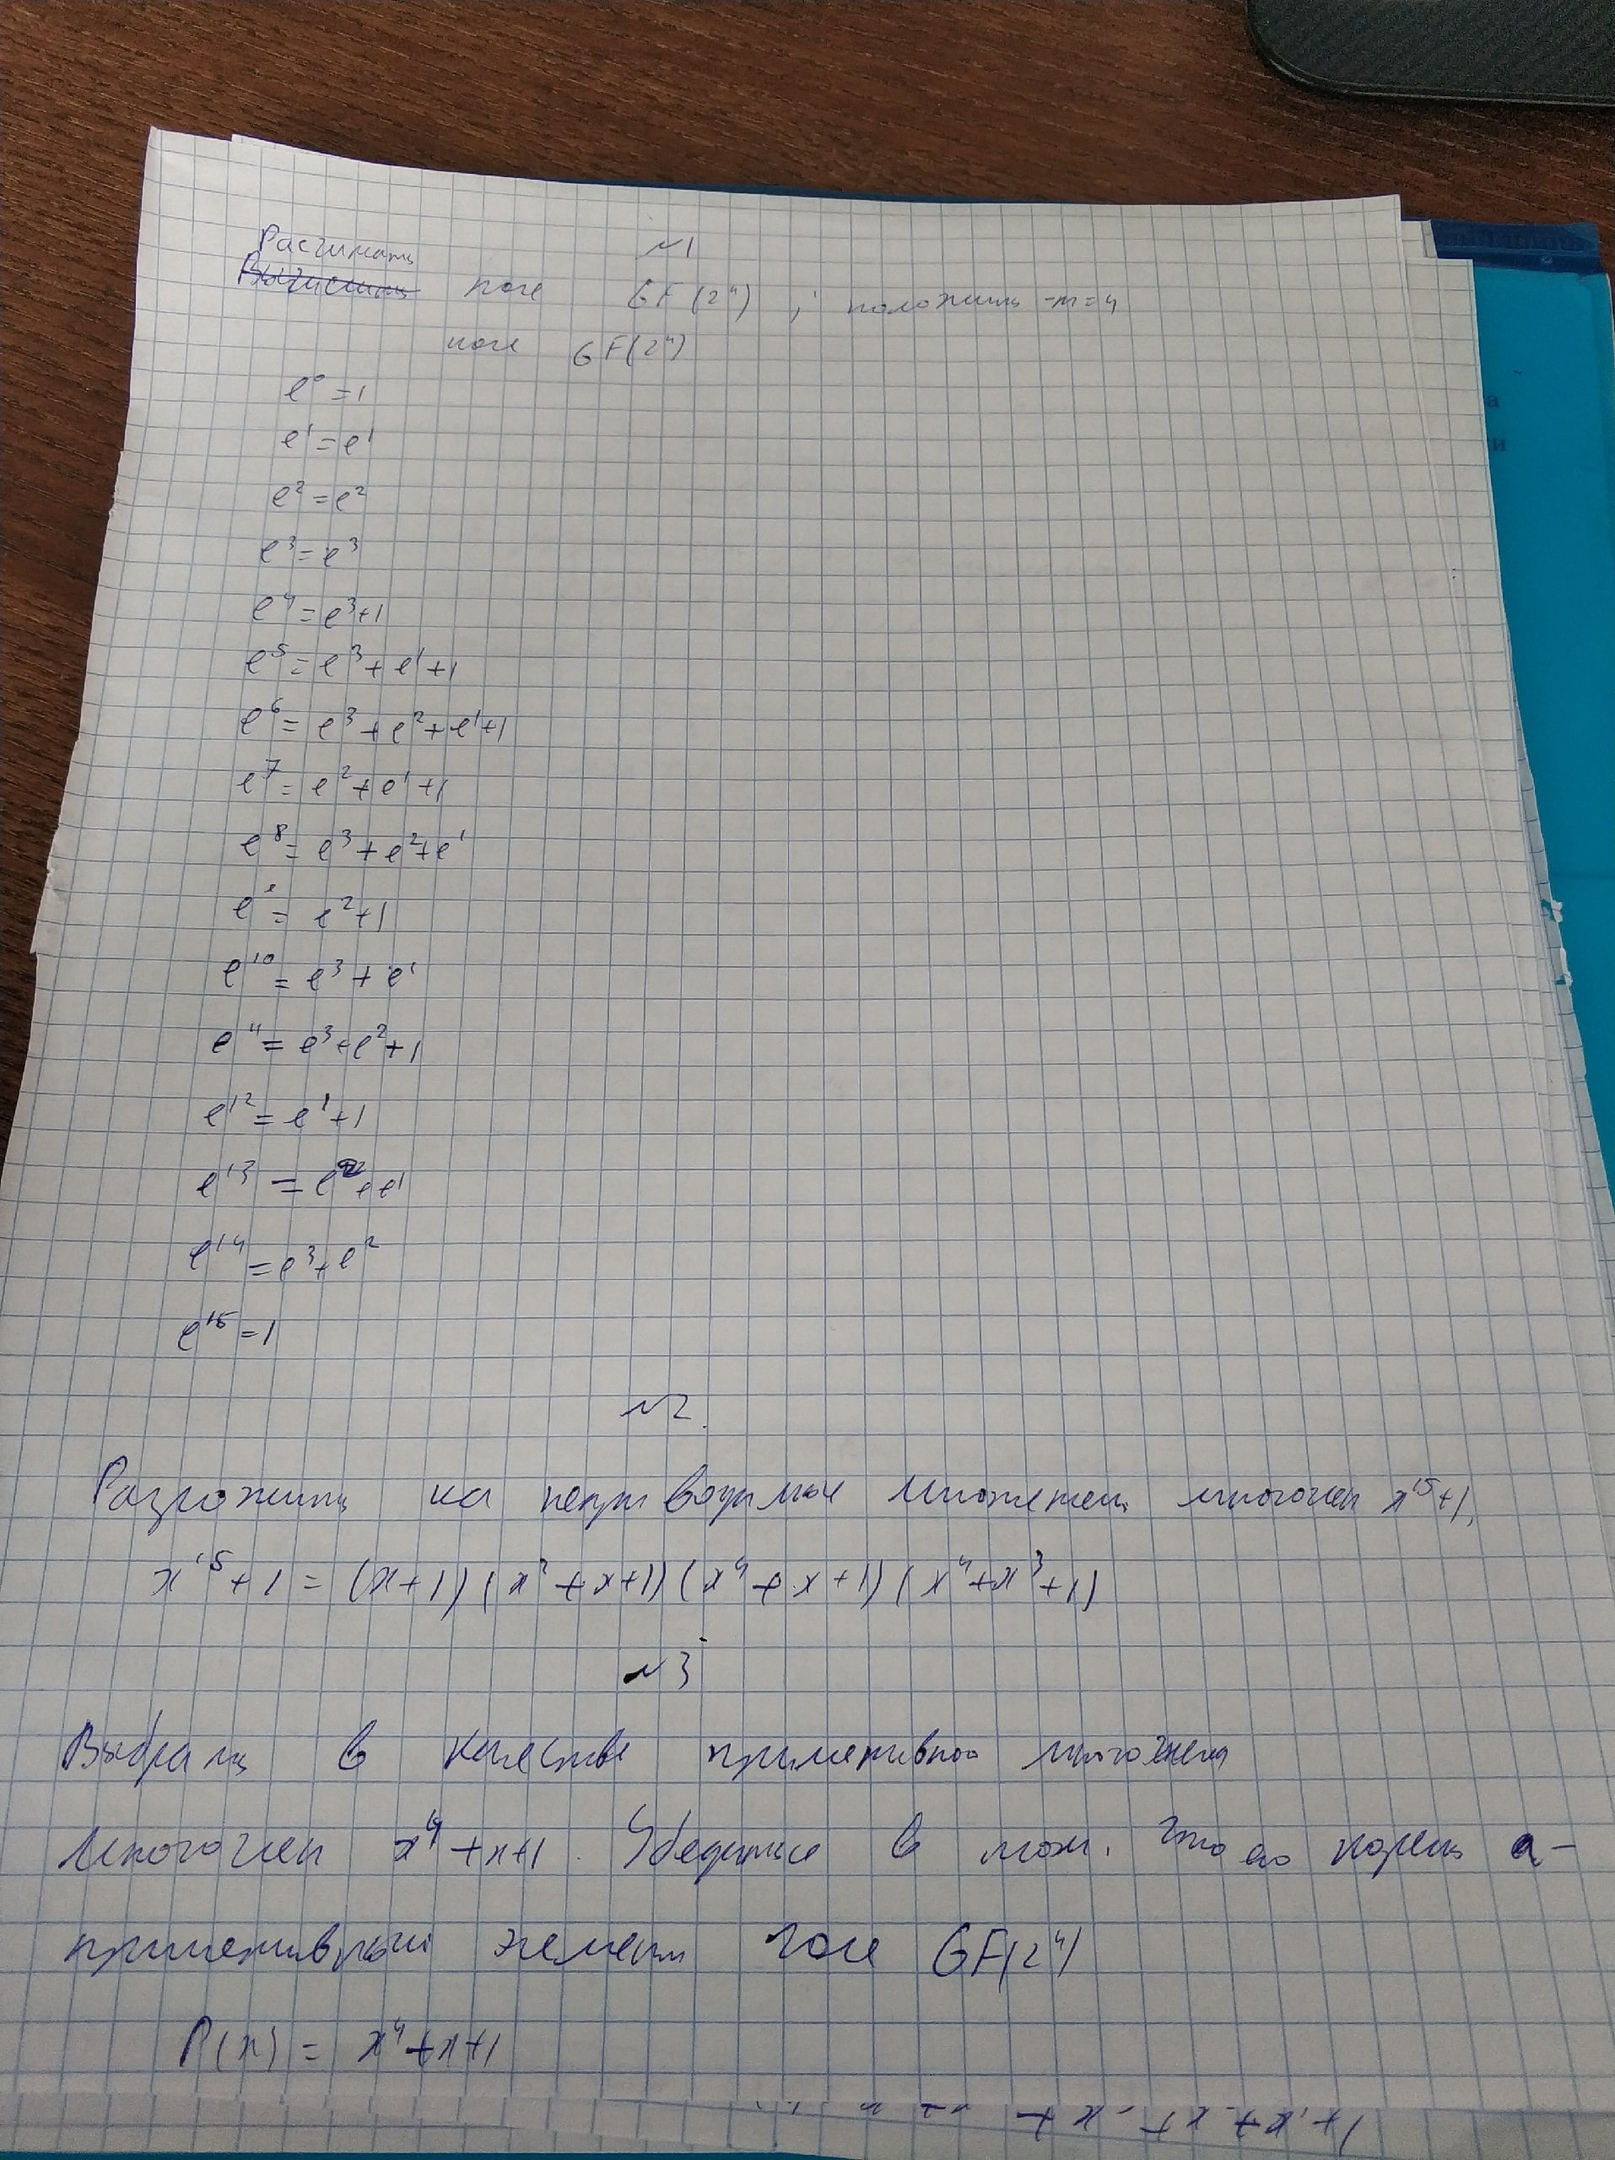 №1
Расчитать
Вычислить поле GF(2⁴), положить m=4
поле GF(2⁴)
e⁰=1
e¹=e¹
e²=e²
e³=e³
e⁴=e³+1
e⁵=e³+e¹+1
e⁶=e³+e²+e¹+1
e⁷=e²+e¹+1
e⁸=e³+e²+e¹
e⁹=e²+1
e¹⁰=e³+e¹
e¹¹=e³+e²+1
e¹²=e¹+1
e¹³=e²+e¹
e¹⁴=e³+e²
e¹⁵=1
№2.
Разложить на неприводимые множители многочлен x¹⁵+1,
x¹⁵+1=(x+1)(x²+x+1)(x⁴+x+1)(x⁴+x³+1)
№3
Выбрать в качестве примитивного многочлена
многочлен x⁴+x+1. Убедиться в том, что его корень a-
примитивный элемент поле GF(2⁴)
P(x)=x⁴+x+1